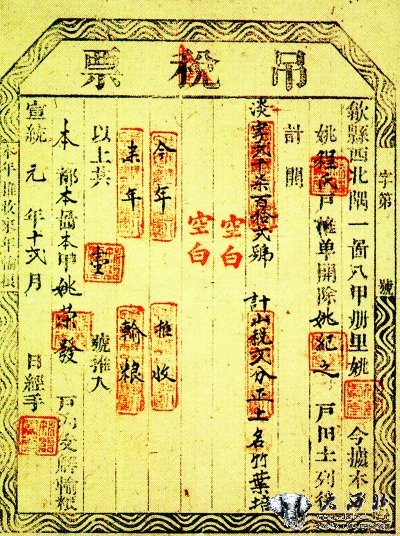 吊税票
字第　號
歙縣西北隅一啚八甲册里姚　今據本
姚程氏戸推单開除姚紀之戸田土列後
計開
淡字列千柒百拾弍號　計山税　分正土名竹葉培
空白
空白
今年　推收
來年　輸粮
以上共壹號推入
本都本啚本甲姚荣發戸内　輸粮
宣統元年十弍月　日經手
本年推收來年輸粮